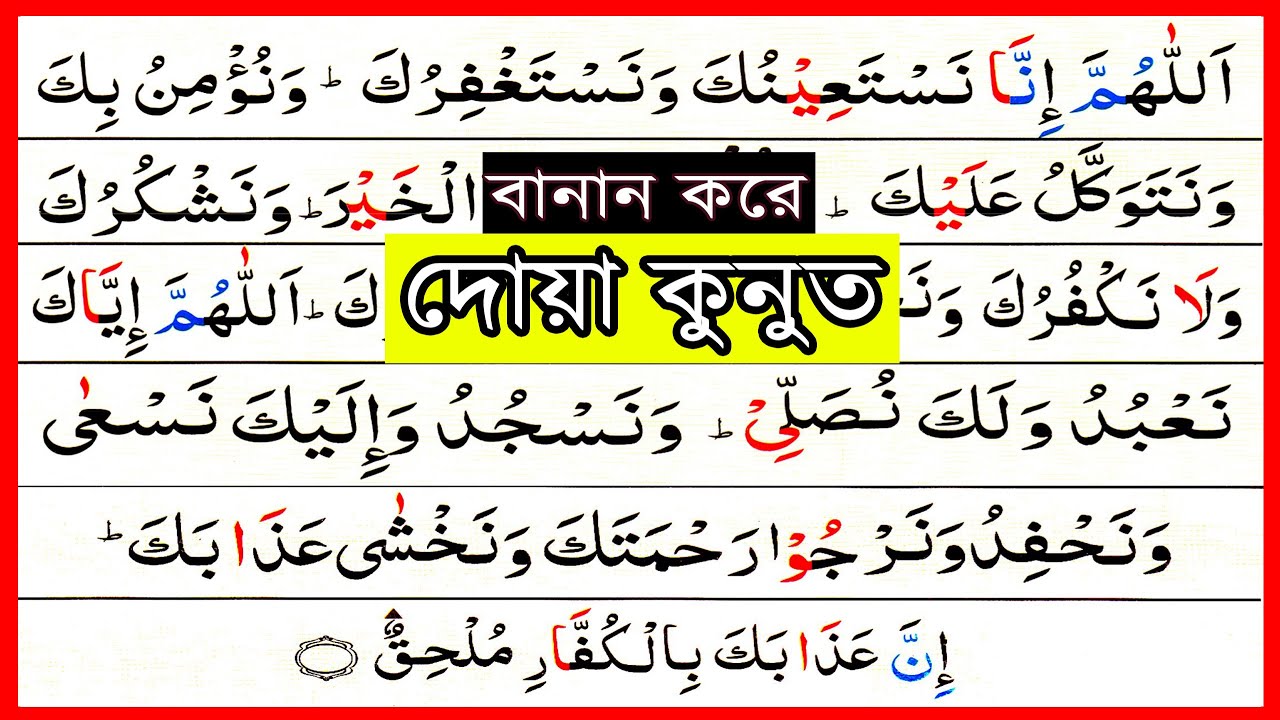 اَللّٰهُمَّ إِنَّا نَسْتَعِيْنُكَ وَنَسْتَغْفِرُكَ ط وَنُؤْمِنُ بِكَ
وَنَتَوَكَّلُ عَلَيْكَ ط الْخَيْرَ ط وَنَشْكُرُكَ
বানান করে
وَلَا نَكْفُرُكَ ط اَللّٰهُمَّ إِيَّاكَ
দোয়া কুনুত
نَعْبُدُ وَلَكَ نُصَلِّيْ ط وَنَسْجُدُ وَإِلَيْكَ نَسْعٰى
وَنَحْفِدُ وَنَرْجُوْا رَحْمَتَكَ وَنَخْشٰى عَذَابَكَ ط
إِنَّ عَذَابَكَ بِالْكُفَّارِ مُلْحِقٌ